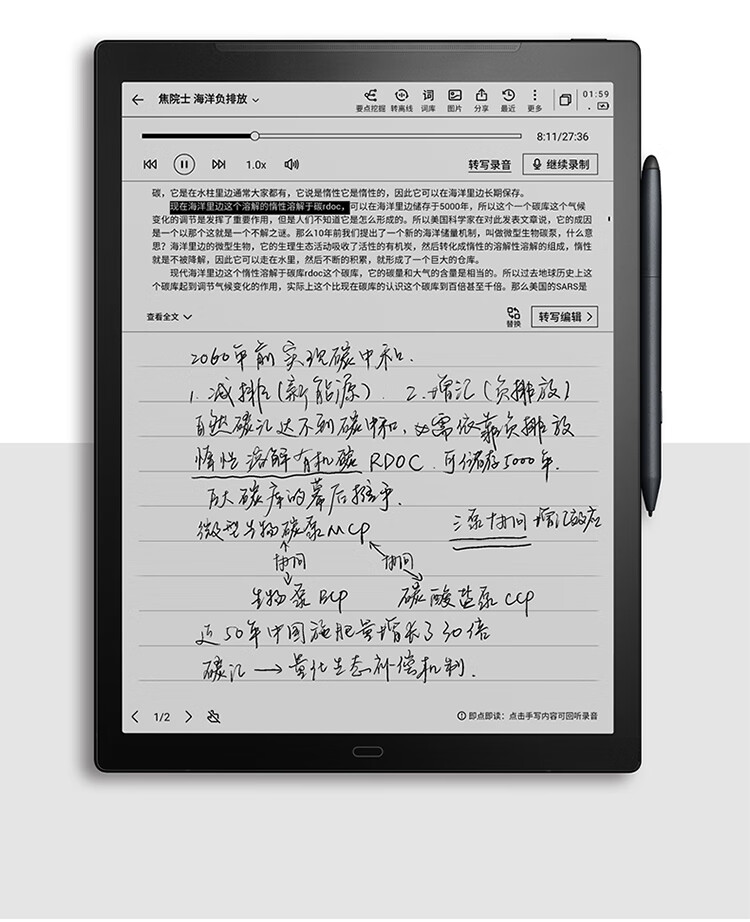 焦院士 海洋负排放
要点挖掘 转离线 词库 图片 分享 最近 更多
01:59
8:11/27:36
1.0x 转写录音 继续录制
碳，它是在水柱里边通常大家都有，它说是惰性它是惰性的，因此它可以在海洋里长期保存。
现在海洋里边这个溶解的惰性溶解于碳rdoc，可以在海洋里储存于5000年，所以这个一个碳库这个气候
变化的调节是发挥了重要作用，但是人们不知道它是怎么形成的。所以美国科学家在对此发表文章说，它的成因
是一个以那个这就是一个不解之谜。那么10年前我们提出了一个新的海洋储量机制，叫做微型生物碳泵，什么意
思？海洋里边的微型生物，它的生理生态活动吸收了活性的有机炭，然后转化成惰性的溶解性溶解的组成，惰性
就是不被降解，因此它可以走在水里，然后不断的积累，就形成了一个巨大的仓库。
现代海洋里这个惰性溶解于碳库rdoc这个碳库，它的碳量和大气的含量是相当的。所以过去地球历史上这
个碳库起到调节气候变化的作用，实际上这个比现在碳库的认识这个碳库到百倍甚至千倍。那么美国的SARS是
查看全文 替换 转写编辑
2060年前实现碳中和.
1. 减排(新能源). 2. 增汇(负排放)
自然碳汇达不到碳中和, 需依靠负排放
惰性溶解有机碳 RDOC. 可储存5000年.
百大碳库的幕后推手.
微型生物碳泵MCP 三泵协同 增汇效应
协同 协同
生物泵BCP 碳酸盐泵CCP
近50年中国施肥量增长了30倍
碳汇 → 量化生态补偿机制.
1/2 即点即读：点击手写内容可回听录音